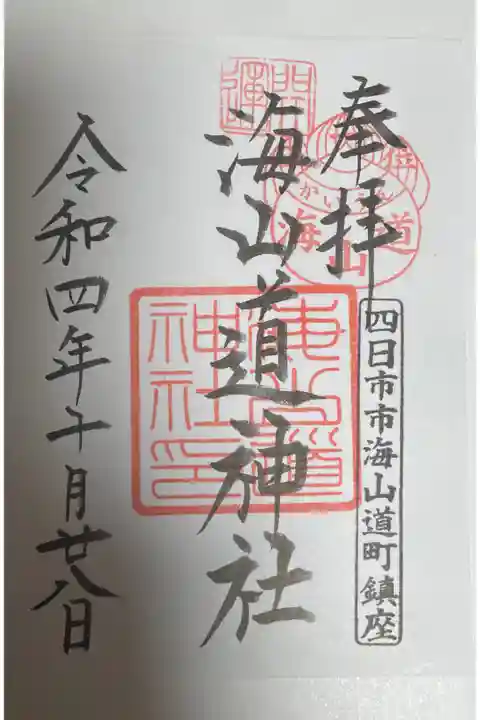 奉拝
四日市市海山道町鎮座
開運
かいさん
海山道
海山道神社
海山道神社印
令和四年十月廿八日